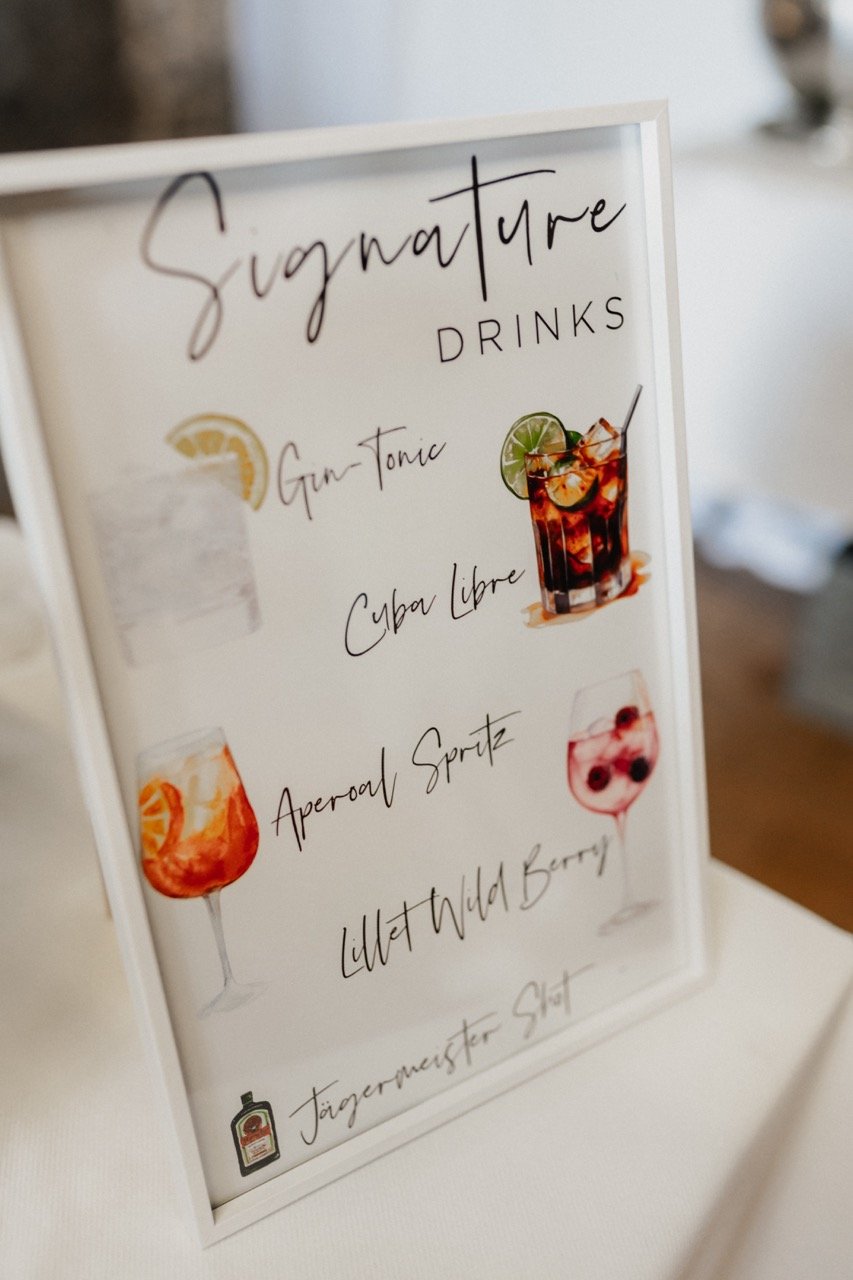 Signature
DRINKS
Gin-Tonic
Cuba Libre
Aperoal Spritz
Lillet Wild Berry
Jägermeister Shot